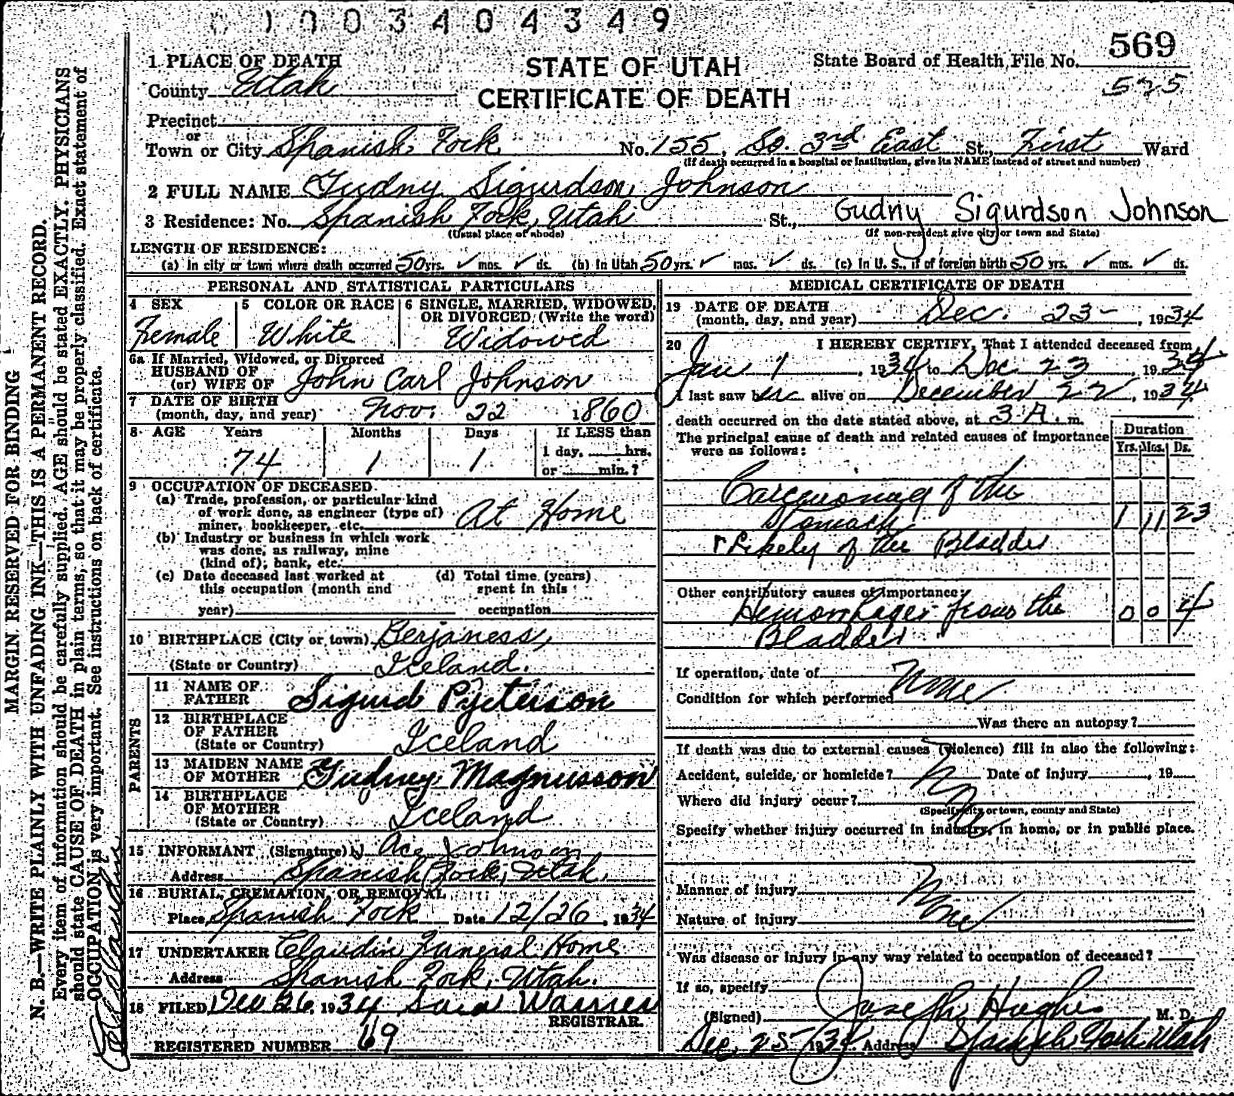 1003404349
569
STATE OF UTAH
CERTIFICATE OF DEATH
State Board of Health File No.
525
1 PLACE OF DEATH
County Utah
Precinct
or
Town or City Spanish Fork No. 155 So. 3rd East St., First Ward
(If death occurred in a hospital or institution, give its NAME instead of street and number)
2 FULL NAME Gudny Sigurdson Johnson
3 Residence: No. Spanish Fork, Utah St., Gudny Sigurdson Johnson
(Usual place of abode) (If non-resident give city or town and State)
LENGTH OF RESIDENCE:
(a) In city or town where death occurred 50 yrs. ✓ mos. ✓ ds. (b) In Utah 50 yrs. ✓ mos. ✓ ds. (c) In U. S., if of foreign birth 50 yrs. ✓ mos. ✓ ds.
PERSONAL AND STATISTICAL PARTICULARS
4 SEX Female
5 COLOR OR RACE White
6 SINGLE, MARRIED, WIDOWED, OR DIVORCED, (Write the word)
Widowed
6a If Married, Widowed, or Divorced
HUSBAND OF
(or) WIFE OF John Carl Johnson
7 DATE OF BIRTH
(month, day, and year) Nov. 22 1860
8 AGE Years Months Days If LESS than
74 1 1 1 day, hrs.
or min.?
9 OCCUPATION OF DECEASED
(a) Trade, profession, or particular kind
of work done, as engineer (type of)
miner, bookkeeper, etc. At Home
(b) Industry or business in which work
was done, as railway, mine
(kind of); bank, etc.
(c) Date deceased last worked at
this occupation (month and
year)
(d) Total time (years)
spent in this
occupation
10 BIRTHPLACE (City or town) Berjaness,
(State or Country) Iceland.
PARENTS
11 NAME OF
FATHER Sigurd Pjeterson
12 BIRTHPLACE
OF FATHER
(State or Country) Iceland
13 MAIDEN NAME
OF MOTHER Gudney Magnusson
14 BIRTHPLACE
OF MOTHER
(State or Country) Iceland
15 INFORMANT (Signature) Ace Johnson
Address Spanish Fork, Utah.
16 BURIAL, CREMATION, OR REMOVAL
Place Spanish Fork Date 12/26, 1934
17 UNDERTAKER Claudin Funeral Home
Address Spanish Fork, Utah.
18 FILED Dec 26, 1934
REGISTRAR.
REGISTERED NUMBER 69
MEDICAL CERTIFICATE OF DEATH
19 DATE OF DEATH
(month, day, and year) Dec. 23 - , 1934
20 I HEREBY CERTIFY, That I attended deceased from
Jan 1, 1934 to Dec 23, 1934
I last saw her alive on December 22, 1934
death occurred on the date stated above, at 3 A. m.
The principal cause of death and related causes of importance
were as follows:
Duration
Yrs. Mos. Ds.
Carcinoma of the
Stomach 1 11 23
Likely of the Bladder
Other contributory causes of importance:
Hemorrhages from the 0 0 4
Bladder
If operation, date of None
Condition for which performed
Was there an autopsy?
If death was due to external causes (violence) fill in also the following:
Accident, suicide, or homicide? Date of injury , 19
Where did injury occur?
(Specify city or town, county and State)
Specify whether injury occurred in industry, in home, or in public place.
Manner of injury None
Nature of injury
Was disease or injury in any way related to occupation of deceased?
If so, specify
(Signed) Joseph Hughes M. D.
Dec. 25, 1934 Address Spanish Fork, Utah
MARGIN RESERVED FOR BINDING
N. B.—WRITE PLAINLY WITH UNFADING INK—THIS IS A PERMANENT RECORD.
Every item of information should be carefully supplied. AGE should be stated EXACTLY. PHYSICIANS
should state CAUSE OF DEATH in plain terms, so that it may be properly classified. Exact statement of
OCCUPATION is very important. See instructions on back of certificate.